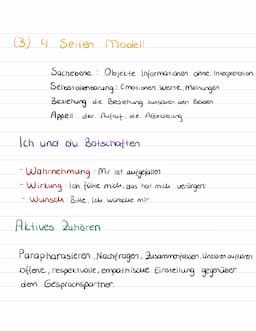 (3) 4 Seiten Modell
Sachebene : Objektive Informationen ohne Interpretation
Selbstoffenbarung : Emotionen, Werte, Meinungen
Beziehung : die Beziehung zwischen den Beiden
Appell : der Aufruf, die Aufforderung
Ich und du Botschaften
- Wahrnehmung : Mir ist aufgefallen
- Wirkung : Ich fühle mich, das hat mich verärgert
- Wunsch : Bitte, Ich wünsche mir
Aktives Zuhören
Paraphrasieren, Nachfragen, Zusammenfassen, Unklares aufklären
offene, respektvolle, empathische Einstellung gegenüber
dem Gesprächspartner.